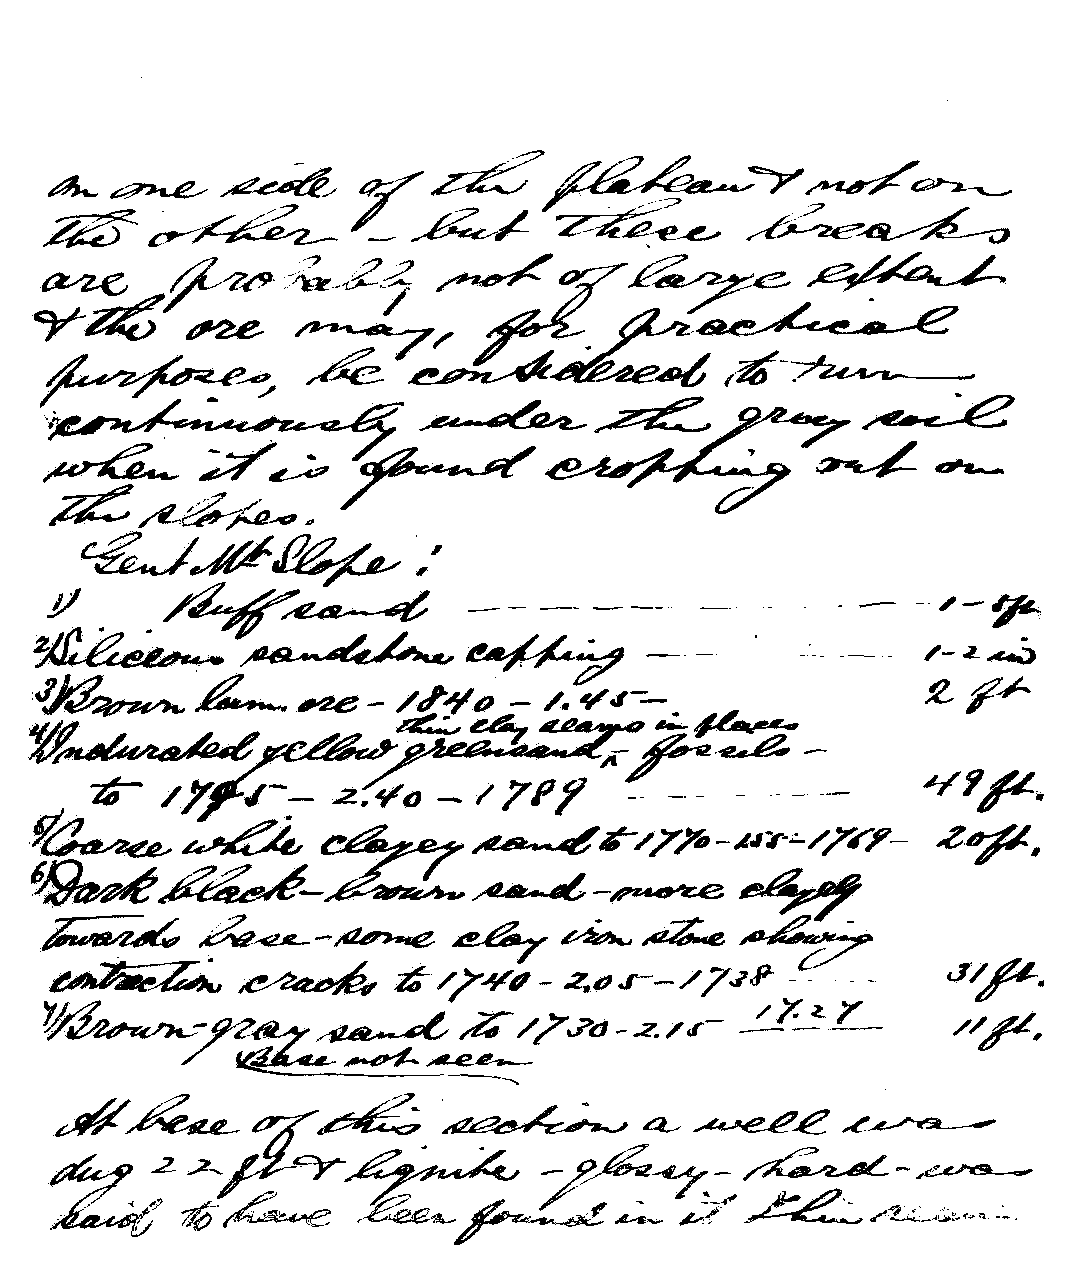 on one side of the plateau & not on
the other - but these breaks
are probably not of large extent
& the ore may, for practical
purposes, be considered to run
continuously under the gray soil
when it is found cropping out on
the slopes.
Gent Mt Slope:
1) Buff sand — 1-5ft
2) Siliceous sandstone capping — 1-2 in
3) Brown lam. ore - 1840 - 1.45 - 2 ft
thin clay seams in places
4) Indurated yellow greensand, ^ fossils -
to 1795 - 2.40 - 1789 — 49 ft.
5) Coarse white clayey sand to 1770-155-1769- 20ft.
6) Dark black-brown sand - more clayey
towards base - some clay iron stone showing
contraction cracks to 1740 - 2.05 - 1738 — 31 ft.
7) Brown-gray sand to 1730-2.15 17.27 11 ft.
Base not seen
At base of this section a well was
dug 22 ft & lignite - glossy - hard - was
said to have been found in it thin seam